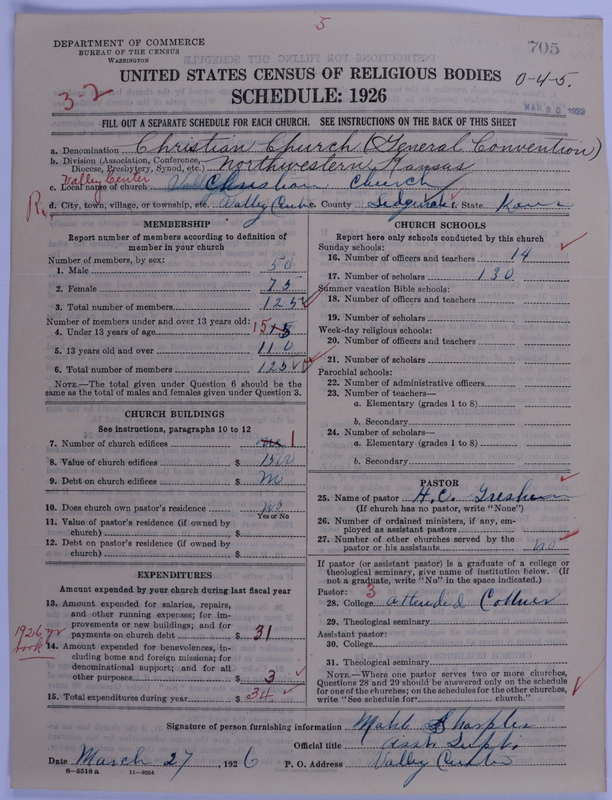 5
705
DEPARTMENT OF COMMERCE
BUREAU OF THE CENSUS
WASHINGTON
UNITED STATES CENSUS OF RELIGIOUS BODIES
0-4-5.
3-2
SCHEDULE: 1926
MAR 30
FILL OUT A SEPARATE SCHEDULE FOR EACH CHURCH. SEE INSTRUCTIONS ON THE BACK OF THIS SHEET
a. Denomination Christian Church (General Convention)
b. Division (Association, Conference, Diocese, Presbytery, Synod, etc.) Northwestern Kansas
Valley Center
c. Local name of church Christian Church
R.
d. City, town, village, or township, etc. Valley Center e. County Sedgwick f. State Kans
MEMBERSHIP
Report number of members according to definition of member in your church
Number of members, by sex:
1. Male 50
2. Female 75
3. Total number of members 125
Number of members under and over 13 years old:
4. Under 13 years of age 15
5. 13 years old and over 110
6. Total number of members 125
NOTE.—The total given under Question 6 should be the same as the total of males and females given under Question 3.
CHURCH BUILDINGS
See instructions, paragraphs 10 to 12
7. Number of church edifices 1
8. Value of church edifices $
9. Debt on church edifices $ no
10. Does church own pastor's residence no
Yes or No
11. Value of pastor's residence (if owned by church) $
12. Debt on pastor's residence (if owned by church) $
EXPENDITURES
Amount expended by your church during last fiscal year
13. Amount expended for salaries, repairs, and other running expenses; for improvements or new buildings; and for payments on church debt $ 31
1926 yr book
14. Amount expended for benevolences, including home and foreign missions; for denominational support; and for all other purposes $ 3
15. Total expenditures during year $ 34
CHURCH SCHOOLS
Report here only schools conducted by this church
Sunday schools:
16. Number of officers and teachers 14
17. Number of scholars 130
Summer vacation Bible schools:
18. Number of officers and teachers
19. Number of scholars
Week-day religious schools:
20. Number of officers and teachers
21. Number of scholars
Parochial schools:
22. Number of administrative officers
23. Number of teachers—
a. Elementary (grades 1 to 8)
b. Secondary
24. Number of scholars—
a. Elementary (grades 1 to 8)
b. Secondary
PASTOR
25. Name of pastor H. C. Gresham
(If church has no pastor, write "None")
26. Number of ordained ministers, if any, employed as assistant pastors
27. Number of other churches served by the pastor or his assistants no
If pastor (or assistant pastor) is a graduate of a college or theological seminary, give name of institution below. (If not a graduate, write "No" in the space indicated.)
Pastor: 3
28. College attended Cotner
29. Theological seminary
Assistant pastor:
30. College
31. Theological seminary
NOTE.—Where one pastor serves two or more churches, Questions 28 and 29 should be answered only on the schedule for one of the churches; on the schedules for the other churches, write "See schedule for church."
Signature of person furnishing information Sharples
Official title Asst Supt.
Date March 27, 1926 P. O. Address Valley Center
8-5318 a 11-9064